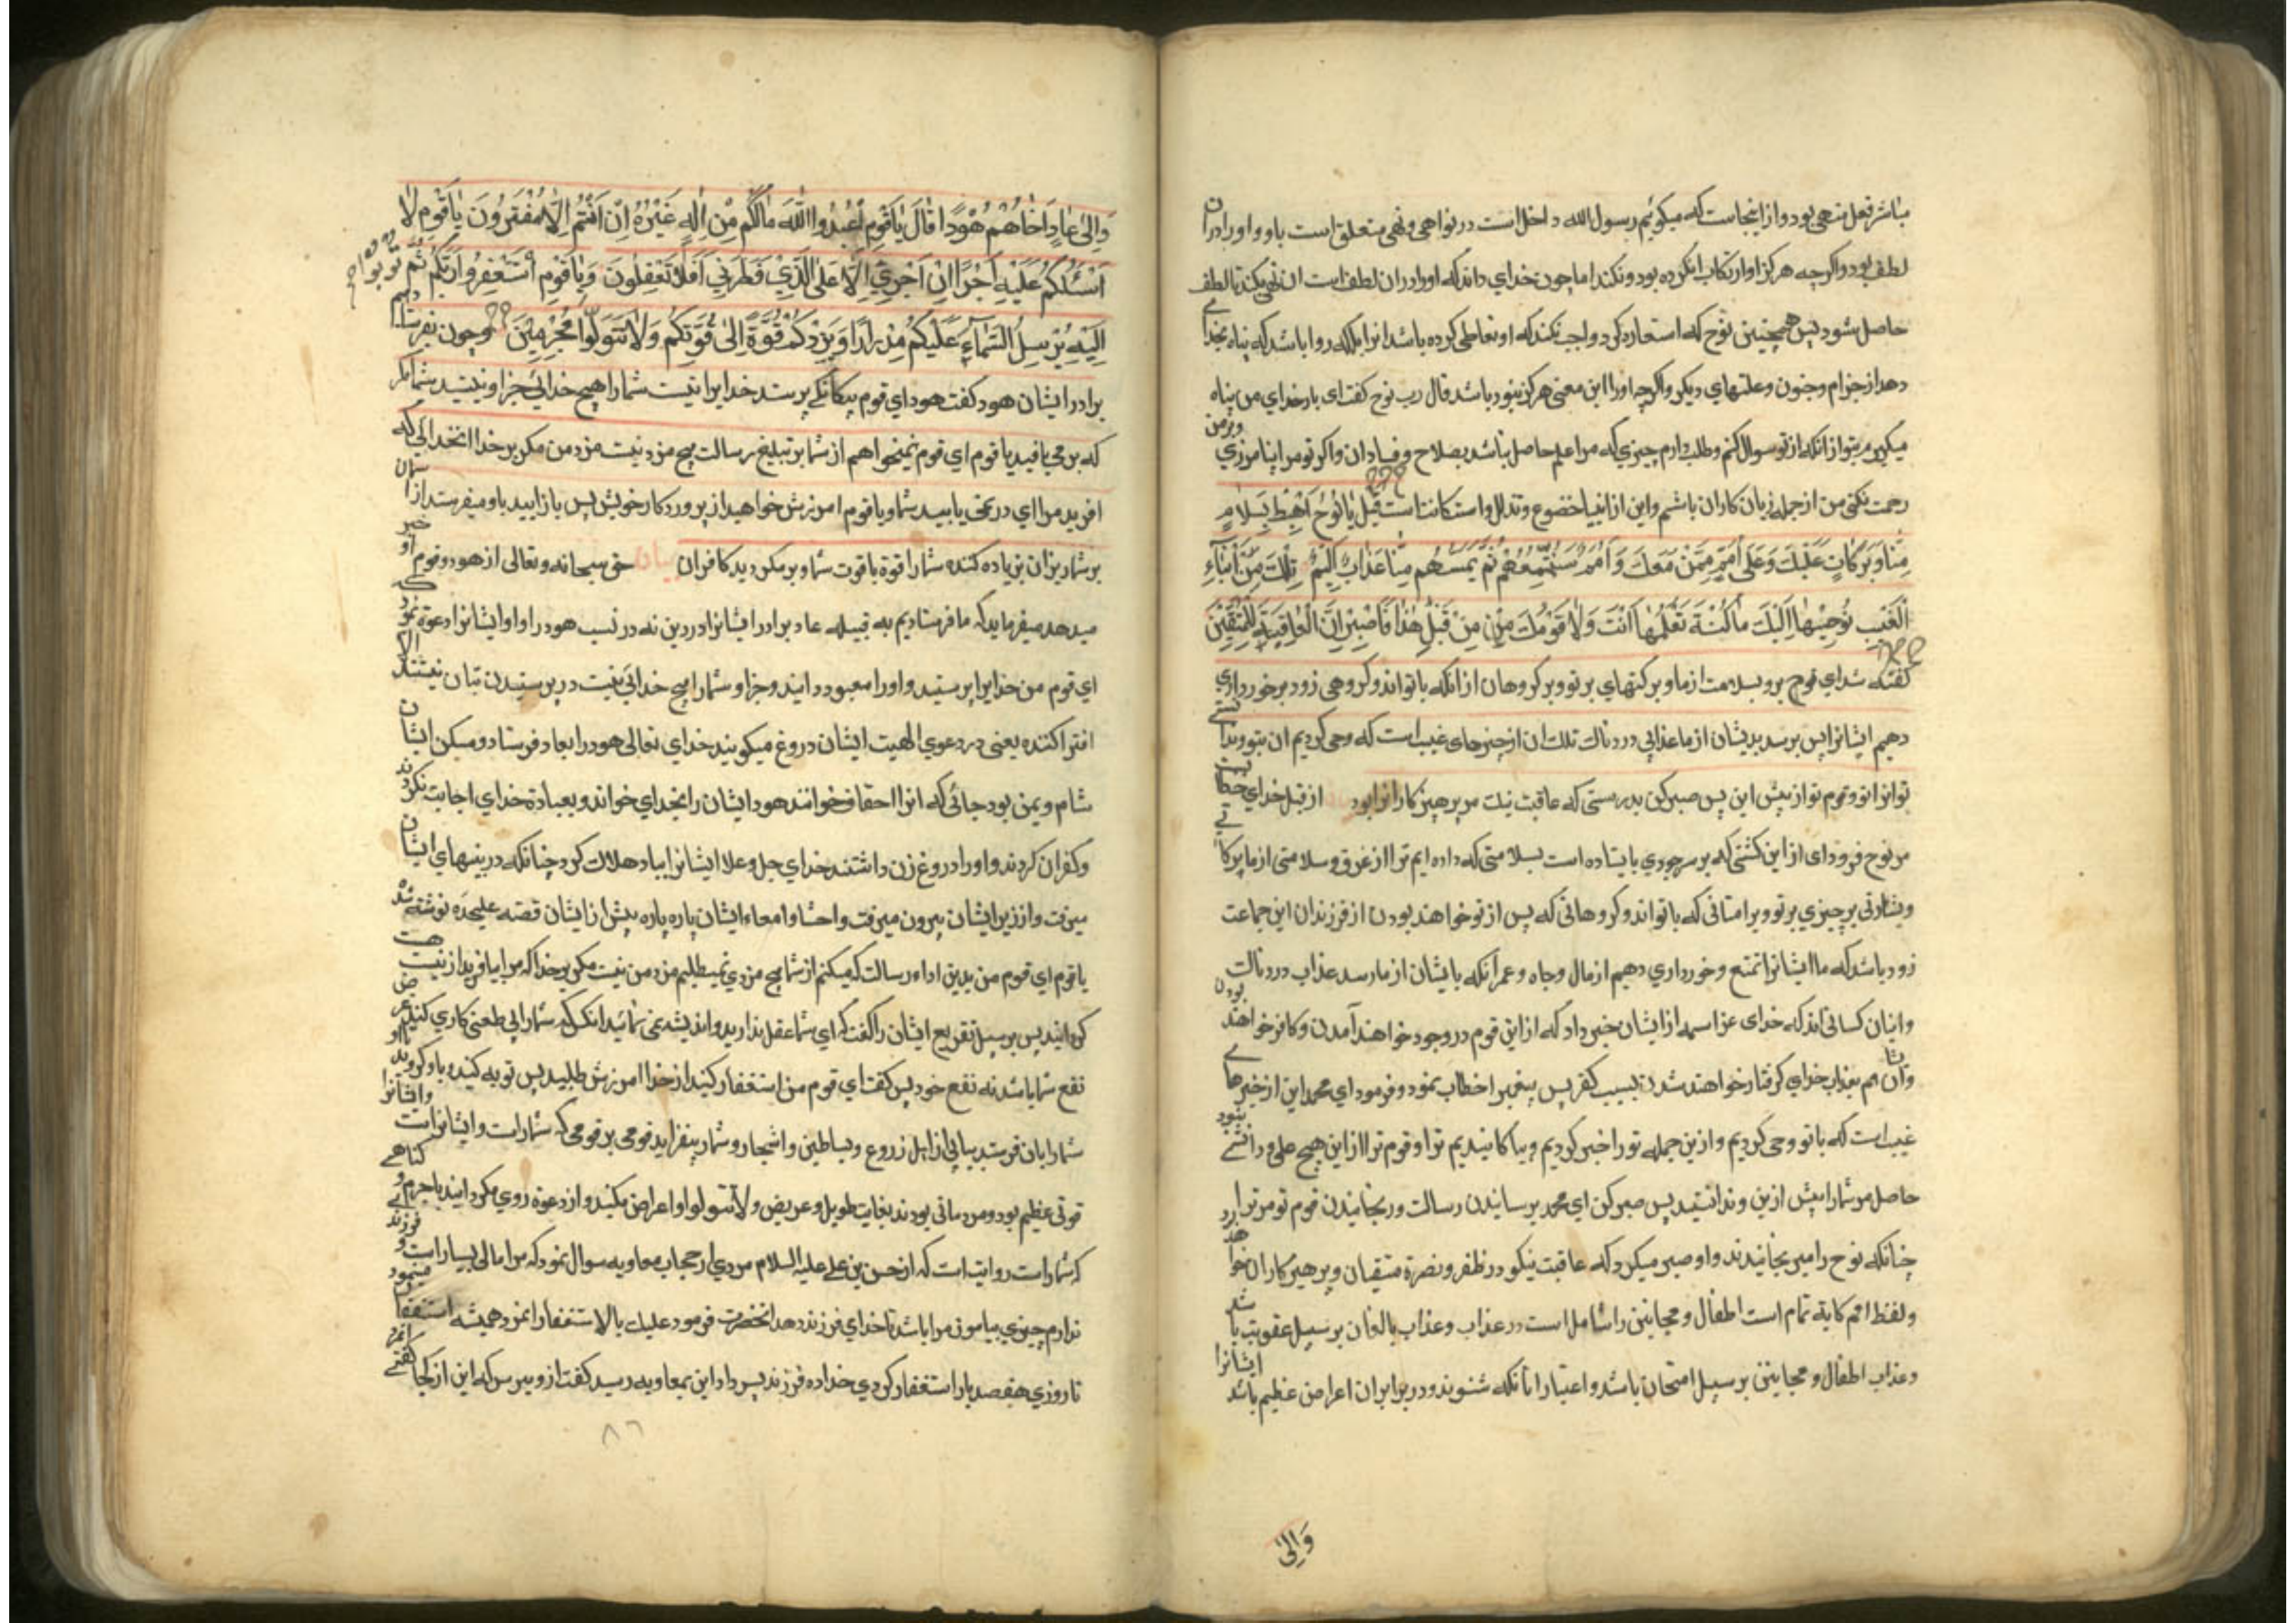 مباشر فعل منهی بود و از اینجاست که میکوئیم رسول الله داخل است در نواهی و نهی متعلق است باو و او را دران
لطف بود و اکرچه هرکز او ارتکاب انکرده بود و نکند اما چون خدای داند که او را دران لطف است ان نهی بکند تا لطف
حاصل شود پس همچنین نوح که استعاذه کرد واجب نکند که او تعاطی کرده باشد انرا بلکه روا باشد که پناه بخدای
دهد از جزام و جنون و علتهای دیکر و اکرچه او را این معنی هرکز نبود باشد قال رب نوح کفت ای بار خدای من پناه
میکیرم بتو از انکه از تو سوال کنم و طلب دارم چیزی که مرا علم حاصل نباشد بصلاح و فساد ان و اکر تو مرا نیامرزی و بر من
رحمت نکنی من از جمله زیان کاران باشم و این از انبیا خضوع و تذلل و استکانت است قِیلَ یٰا نُوحُ اهْبِطْ بِسَلٰامٍ
مِنّٰا وَبَرَکٰاتٍ عَلَیْكَ وَعَلیٰ اُمَمٍ مِمَّنْ مَعَكَ وَاُمَمٌ سَنُمَتِّعُهُمْ ثُمَّ یَمَسُّهُم مِنّٰا عَذٰابٌ اَلِیمٌ تِلْكَ مِنْ اَنْبٰاءِ
الْغَیْبِ نُوحِیْهٰا اِلَیْكَ مٰا کُنْتَ تَعْلَمُهٰا اَنْتَ وَلٰا قَوْمُكَ مِنْ قَبْلِ هٰذٰا فَاصْبِرْ اِنَّ الْعٰاقِبَةَ لِلْمُتَّقِیْنَ
کفته شد ای نوح برو بسلامت از ما و برکتهای بر تو و بر کروهان از انکه با تواند و کروهی زود برخورداری
دهیم ایشانرا پس برسد بدیشان از ما عذابی دردناك تلك ان از چیزهای غیب است که وحی کردیم ان بتو و ندانستی
تو انرا تو و قوم تو از پیش این پس صبر کن بدرستی که عاقبت نیك مر پرهیزکارانرا بود از قبل خدای خطاب
مر نوح فرود ای از این کشتی که بر سر جودی بایستاده است بسلامتی که داده ایم ترا از غرق و سلامتی از ما برکاتی
و بشارتی بر چیزی بر تو و بر امتانی که با تواند و کروهانی که پس از تو خواهند بودن از فرزندان این جماعت
زود باشد که ما ایشانرا تمتع و خورداری دهیم از مال و جاه و عمر انکه بایشان از ما رسد عذاب دردناك
و اینان کسانی اند که خدای عز اسمه از ایشان خبر داد که از این قوم در وجود خواهند آمدن و کافر خواهند بودن
و انان هم بعذاب خدای کرفتار خواهند شدن بسبب کفر پس پیغمبر را خطاب نمود و فرمود ای محمد این از خبرهای
غیب است که با تو وحی کردیم و از ین جمله تو را خبر کردیم و بیاکاهانیدیم ترا و قوم ترا از این هیچ علم و دانشی نبود
حاصل مر شما را پیش از ین و ندانستید پس صبر کن ای محمد برسانیدن رسالت و رنجانیدن قوم تو مر ترا
چنانکه نوح را میرنجانیدند و او صبر میکرد که عاقبت نیکو در ظفر و نصرة متقیان و پرهیزکاران خواهد
و لفظ امم کایة تمام است اطفال و مجانین را شامل است در عذاب و عذاب بالغان بر سبیل عقوبت باشد
و عذاب اطفال و مجانین بر سبیل امتحان باشد و اعتبار انانکه شنوند و در برابر ان اعراض عظیم باشد ایشانرا
وَاِلیٰ
وَاِلیٰ عٰادٍ اَخٰاهُمْ هُوْدًا قٰالَ یٰا قَوْمِ اعْبُدُوا اللّٰهَ مٰا لَکُمْ مِنْ اِلٰهٍ غَیْرُهُ اِنْ اَنْتُمْ اِلّٰا مُفْتَرُونَ یٰا قَوْمِ لٰا
اَسْئَلُکُمْ عَلَیْهِ اَجْرًا اِنْ اَجْرِیَ اِلّٰا عَلَی الَّذِیْ فَطَرَنِی اَفَلٰا تَعْقِلُونَ وَیٰا قَوْمِ اسْتَغْفِرُوا رَبَّکُمْ ثُمَّ تُوبُوا
اِلَیْهِ یُرْسِلِ السَّمٰاءَ عَلَیْکُمْ مِدْرٰارًا وَیَزِدْکُمْ قُوَّةً اِلیٰ قُوَّتِکُمْ وَلٰا تَتَوَلَّوْا مُجْرِمِیْنَ و چون بفرستادیم
برادر ایشان هود کفت هود ای قوم بیکانکی پرستد خدایرا نیست شما را هیچ خدائی جز او نیستید شما مکر
که بر می بافید یا قوم ای قوم نمیخواهم از شما بر تبلیغ رسالت هیچ مزد نیست مزد من مکر بر خدا انخدائی که
افرید مرا ای در نمی یابید شما و یا قوم امرزش خواهید از پروردکار خویش پس باز ایید باو میفرستد از اسمان
بر شما ریزان بزیاده کند شما را قوة با قوت شما و برمکردید کافران بیان حق سبحانه و تعالی از هود و قوم او خبر
میدهد میفرماید که ما فرستادیم به قبیله عاد برادر ایشانرا در دین نه در نسب هود را و او ایشانرا دعوة نمود که
ای قوم من خدایرا پرستید و او را معبود دانید و جز او شما را هیچ خدائی نیست در پرستیدن بتان نیستند الا
افترا کننده یعنی در دعوی الهیت ایشان دروغ میکویند خدای تعالی هود را بعاد فرستاد و مسکن ایشان
شام و یمن بود جائی که انرا احقاف خوانند هود ایشان را بخدای خواند و بعبادة خدای اجابت نکردند
و کفران کردند و او را دروغ زن داشتند خدای جل و علا ایشانرا بباد هلاك کرد چنانکه در بینیهای ایشان
میرفت و از زیر ایشان بیرون میرفت و احشا و امعاء ایشان پاره پاره پیش از ایشان قصه علیحده نوشته شد
یا قوم ای قوم من بدین اداء رسالت که میکنم از شما هیچ مزدی نمیطلبم مزد من نیست مکر بر خدا که مرا بیافرید از نیست هست
کردانید پس بر سبیل تقریع ایشان را کفت که ای شما عقل ندارید و اندیشه نمی نمائید انکس که شما را بی طمعی کاری کند غرض
نفع شما باشد نه نفع خود پس کفت ای قوم من استغفار کنید از خدا امرزش طلبید پس توبه کنید و باو کروید تا او
شما را باران فرستد بیاپی از اهل زروع و بساطین و اشجار و شما را بیفزاید قومی بر قومی که شماراست و ایشانراست و ایشانرا
قوتی عظیم بود و مردمانی بودند بغایت طویل و عریض و لا تتولوا و اعراض مکنید و از دعوة روی مکردانید با جرم و کناهی
که شماراست روایت است که از حسن بن علی علیه السلام مردی از حجاب معاویه سوال نمود که مرا مالی بسیار است و فرزند
ندارم چیزی بیاموز مرا باشد تا خدای فرزند دهد انحضرت فرمود علیك بالاستغفار انمرد همیشه استغفار مینمود
تا روزی هفصد بار استغفار کردی خدا ده فرزند پس داد این بمعاویه رسید کفت از و بپرس که این از کجا کفتی انمرد
٨٦